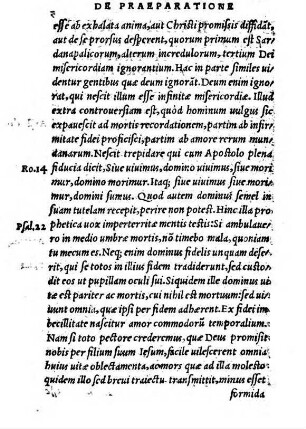 DE PRAEPARATIONE
esse ab exhalata anima, aut Christi promissis diffidāt,
aut de se prorsus desperent, quorum primum est Sar
danapalicorum, alterum incredulorum, tertium Dei
misericordiam ignorantium. Hac in parte similes ui
dentur gentibus quae deum ignorāt. Deum enim igno
rat, qui nescit illum esse infinitae misericordiae. Illud
extra controuersiam est, quòd hominum uulgus sic
expauescit ad mortis recordationem, partim ab infir
mitate fidei proficisci, partim ab amore rerum mun
danarum. Nescit trepidare qui cum Apostolo plena
Ro.14. fiducia dicit, Siue uiuimus, domino uiuimus, siue mori
mur, domino morimur. Itaq; siue uiuimus siue mori
mur, domini sumus. Quod autem dominus semel in
suam tutelam recepit, perire non potest. Hinc illa pro
phetica uox imperterritae mentis testis: Si ambulaue
Psal.22 ro in medio umbrae mortis, nō timebo mala, quoniam
tu mecum es. Neq; enim dominus fidelis unquam dese
rit, qui se totos in illius fidem tradiderunt, sed custo
dit eos ut pupillam oculi sui. Siquidem ille dominus ui
tae est pariter ac mortis, cui nihil est mortuum: sed ui
uunt omnia, quae ipsi per fidem adherent. Ex fidei im
becillitate nascitur amor commodorū temporalium.
Nam si toto pectore crederemus, quae Deus promisit
nobis per filium suum Iesum, facile uilescerent omnia
huius uitae oblectamenta, mors quae ad illa molesto
quidem illo sed breui traiectu transmittit, minus esset
formida